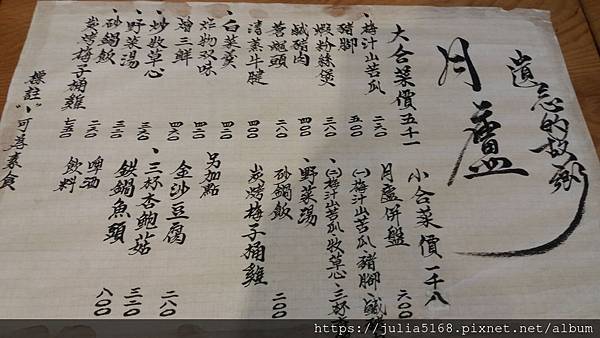 遺忘的故鄉
月廬
大合菜價五千一
、梅汁山苦瓜 二六〇
豬腳 五〇〇
蝦粉絲煲 三八〇
鹹豬肉 四〇〇
薯麭頭 二八〇
清蒸牛腱 四二〇
、白菜羹
炸物双味 四二〇
燴三鮮 四六〇
、炒牧草心 三二〇
、野菜湯 三六〇
、砂鍋飯 二六〇
炭烤梅子桶雞 七五〇
標註"、"可善素食
小合菜價一千八
月廬併盤 六〇〇
(一)梅汁山苦瓜、豬腳、鹹
、(二)梅汁山苦瓜、牧草心、三杯
、野菜湯
砂鍋飯 二〇〇
炭烤梅子桶雞
另加點
金沙豆腐 二八〇
、三杯杏鮑菇 三二〇
鉄鍋魚頭 八〇〇
啤酒
飲料
https://julia5168.pixnet.net/album